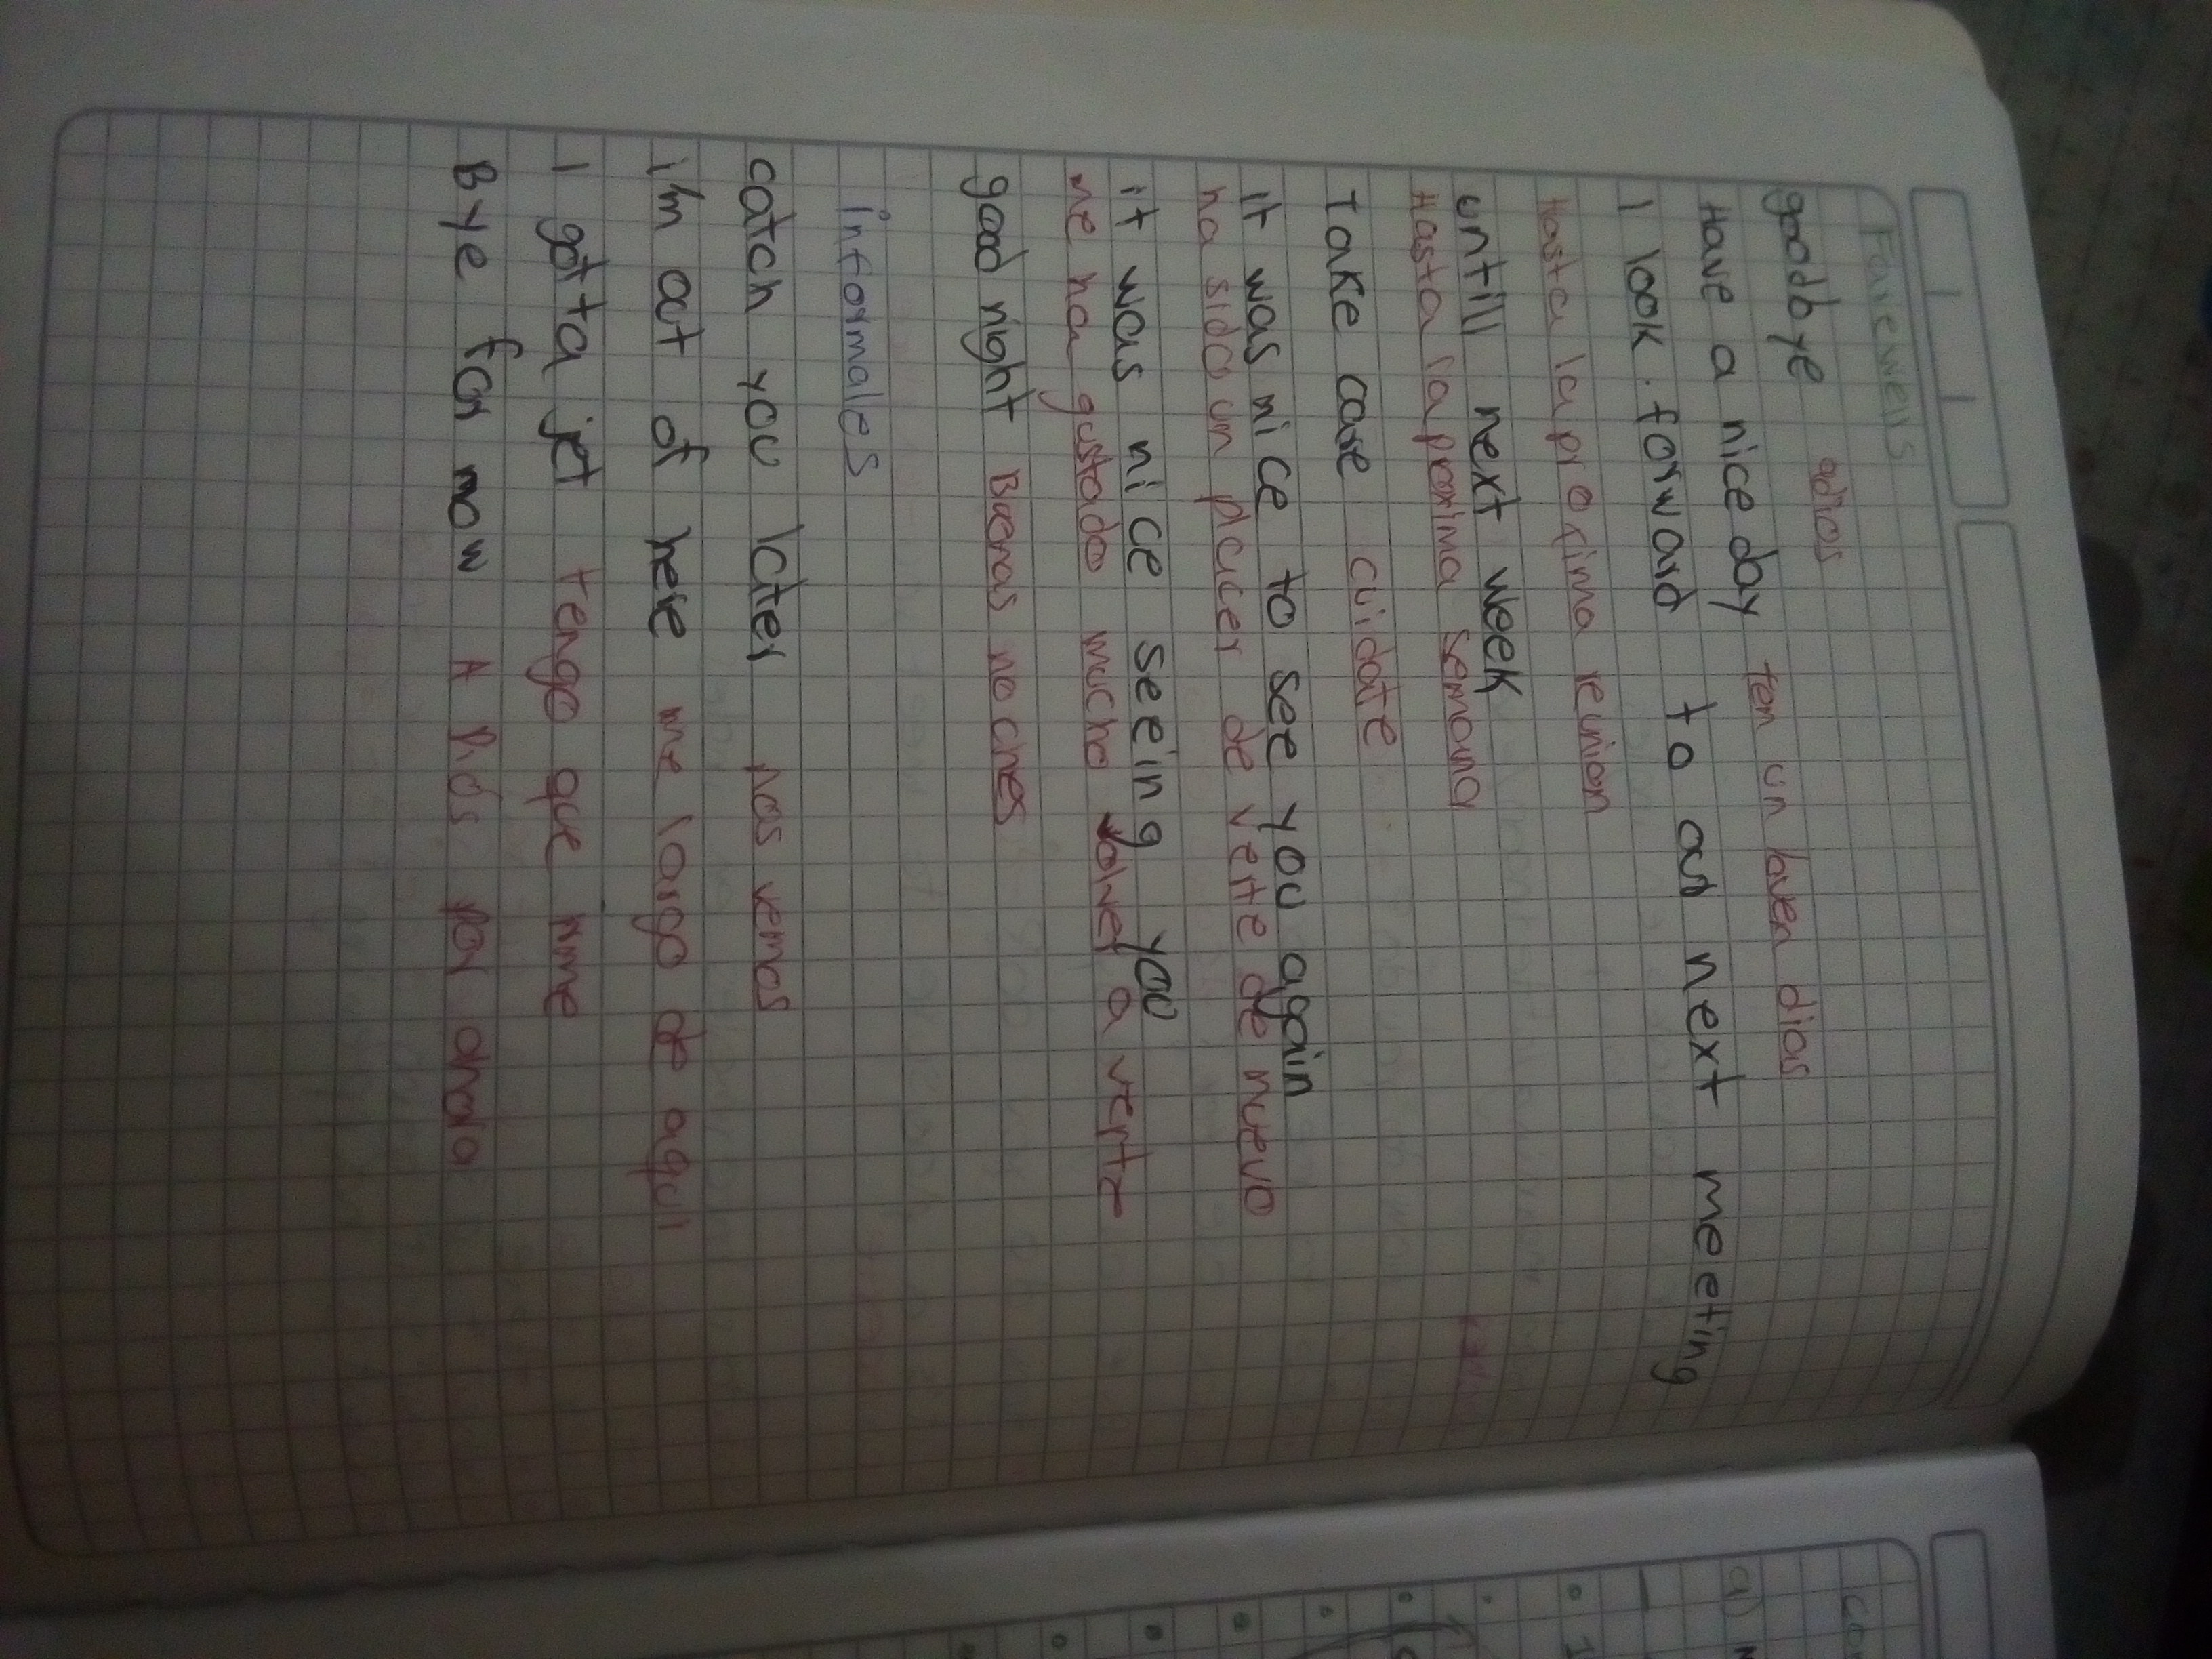 Farewells
goodbye adios
Have a nice day ten un buen dias
I look forward to our next meeting
Hasta la proxima reunion
untill next week
Hasta la proxima semana
Take care cuidate
it was nice to see you again
ha sido un placer de verte de nuevo
it was nice seeing you
me ha gustado mucho volver a verte
good night Buenas noches
informales
catch you later nos vemos
i'm out of here me largo de aqui
I gotta jet tengo que irme
Bye for now A Dios por ahora